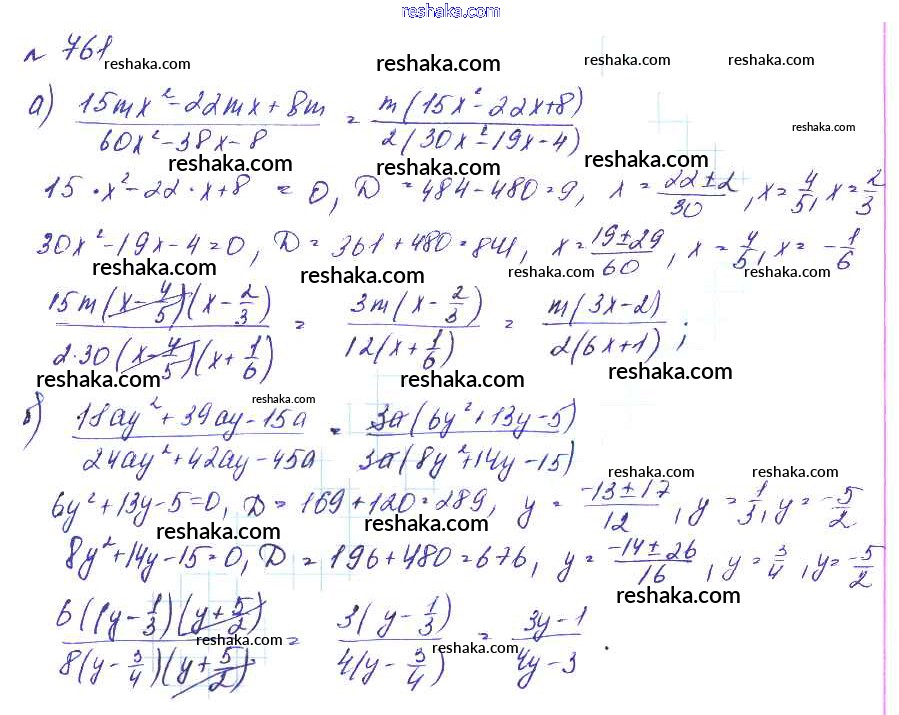 reshaka.com
№ 761
reshaka.com reshaka.com reshaka.com
а) (15mx² - 22mx + 8m)/(60x² - 38x - 8) = m(15x² - 22x + 8)/2(30x² - 19x - 4)
reshaka.com
reshaka.com reshaka.com reshaka.com
15 · x² - 22 · x + 8 = 0, D = 484 - 480 = 9, x = (22 ± 2)/30, x = 4/5, x = 2/3
reshaka.com reshaka.com
30x² - 19x - 4 = 0, D = 361 + 480 = 841, x = (19 ± 29)/60, x = 4/5, x = -1/6
reshaka.com reshaka.com reshaka.com reshaka.com
15m(x - 4/5)(x - 2/3)/2·30(x - 4/5)(x + 1/6) = 3m(x - 2/3)/12(x + 1/6) = m(3x - 2)/2(6x + 1);
reshaka.com reshaka.com reshaka.com
reshaka.com
б) (18ay² + 39ay - 15a)/(24ay² + 42ay - 45a) = 3a(6y² + 13y - 5)/3a(8y² + 14y - 15)
reshaka.com reshaka.com
6y² + 13y - 5 = 0, D = 169 + 120 = 289, y = (-13 ± 17)/12, y = 1/3, y = -5/2
reshaka.com reshaka.com reshaka.com
8y² + 14y - 15 = 0, D = 196 + 480 = 676, y = (-14 ± 26)/16, y = 3/4, y = -5/2
reshaka.com
6((y - 1/3)(y + 5/2)/8(y - 3/4)(y + 5/2) = 3(y - 1/3)/4(y - 3/4) = (3y - 1)/(4y - 3).
reshaka.com reshaka.com
reshaka.com reshaka.com